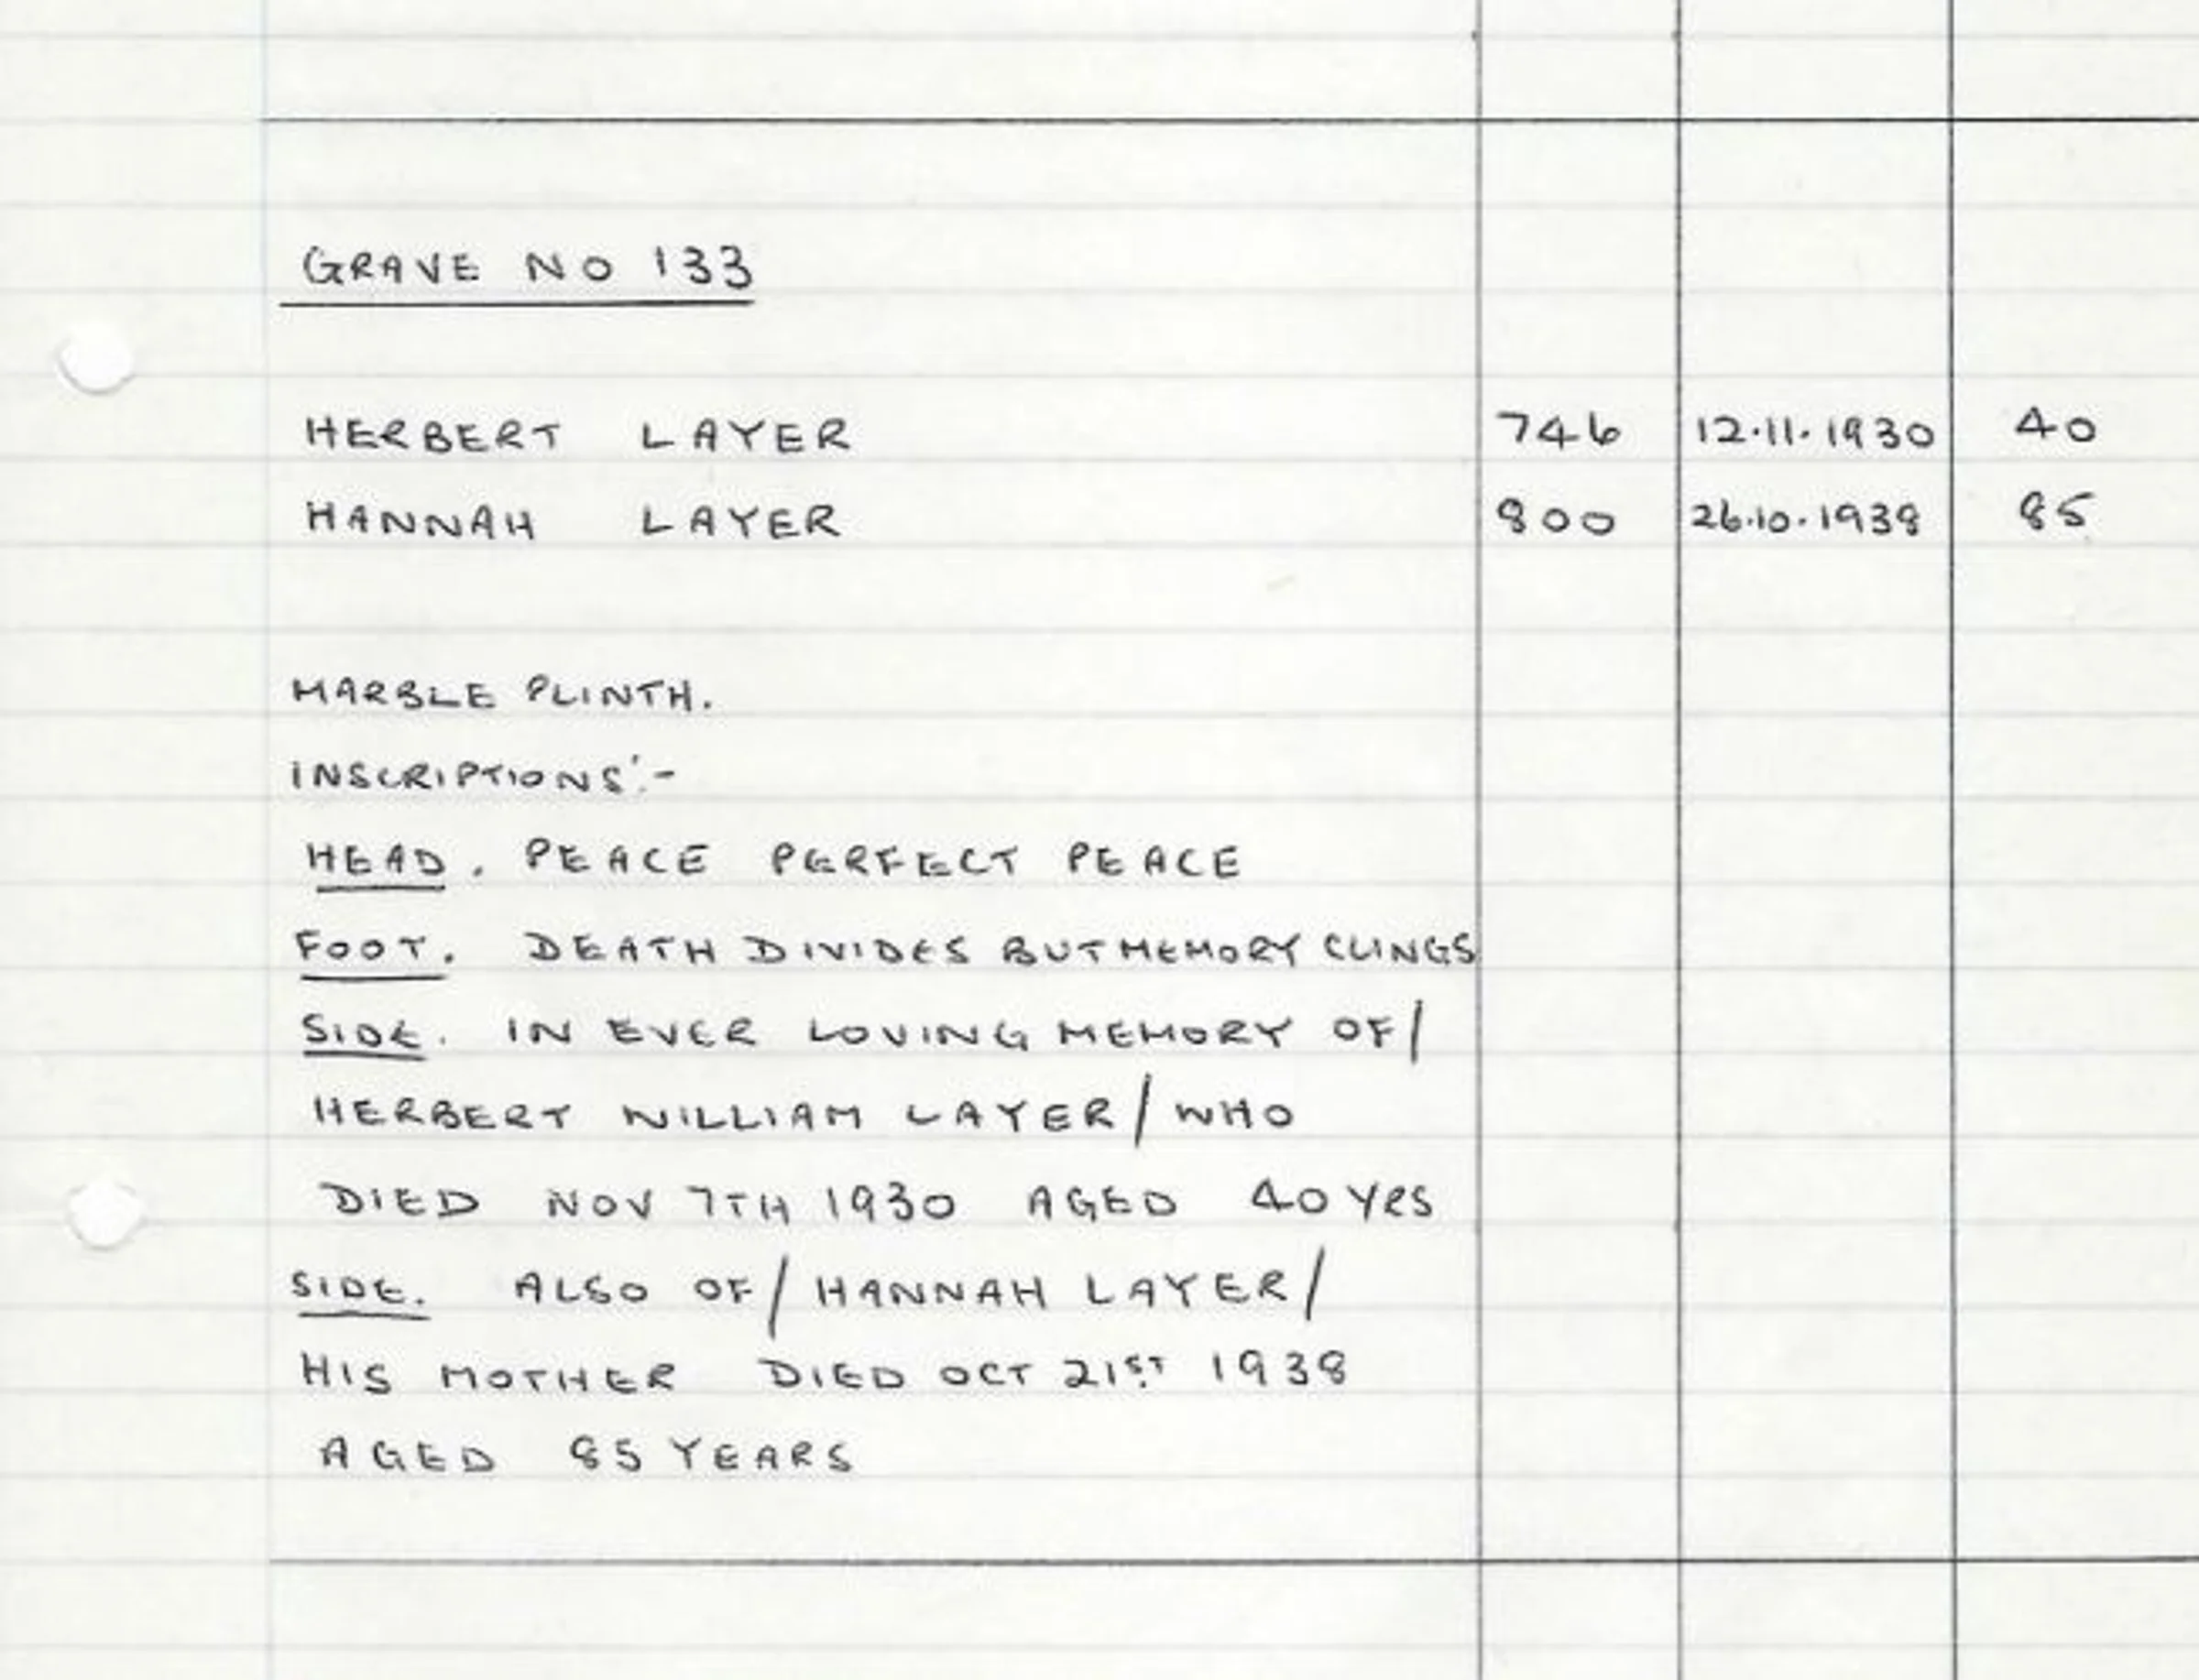 GRAVE NO 133
HERBERT LAYER 746 12.11.1930 40
HANNAH LAYER 800 26.10.1938 85
MARBLE PLINTH.
INSCRIPTIONS:-
HEAD. PEACE PERFECT PEACE
FOOT. DEATH DIVIDES BUT MEMORY CLINGS
SIDE. IN EVER LOVING MEMORY OF/
HERBERT WILLIAM LAYER/WHO
DIED NOV 7TH 1930 AGED 40 YRS
SIDE. ALSO OF/HANNAH LAYER/
HIS MOTHER DIED OCT 21ST 1938
AGED 85 YEARS